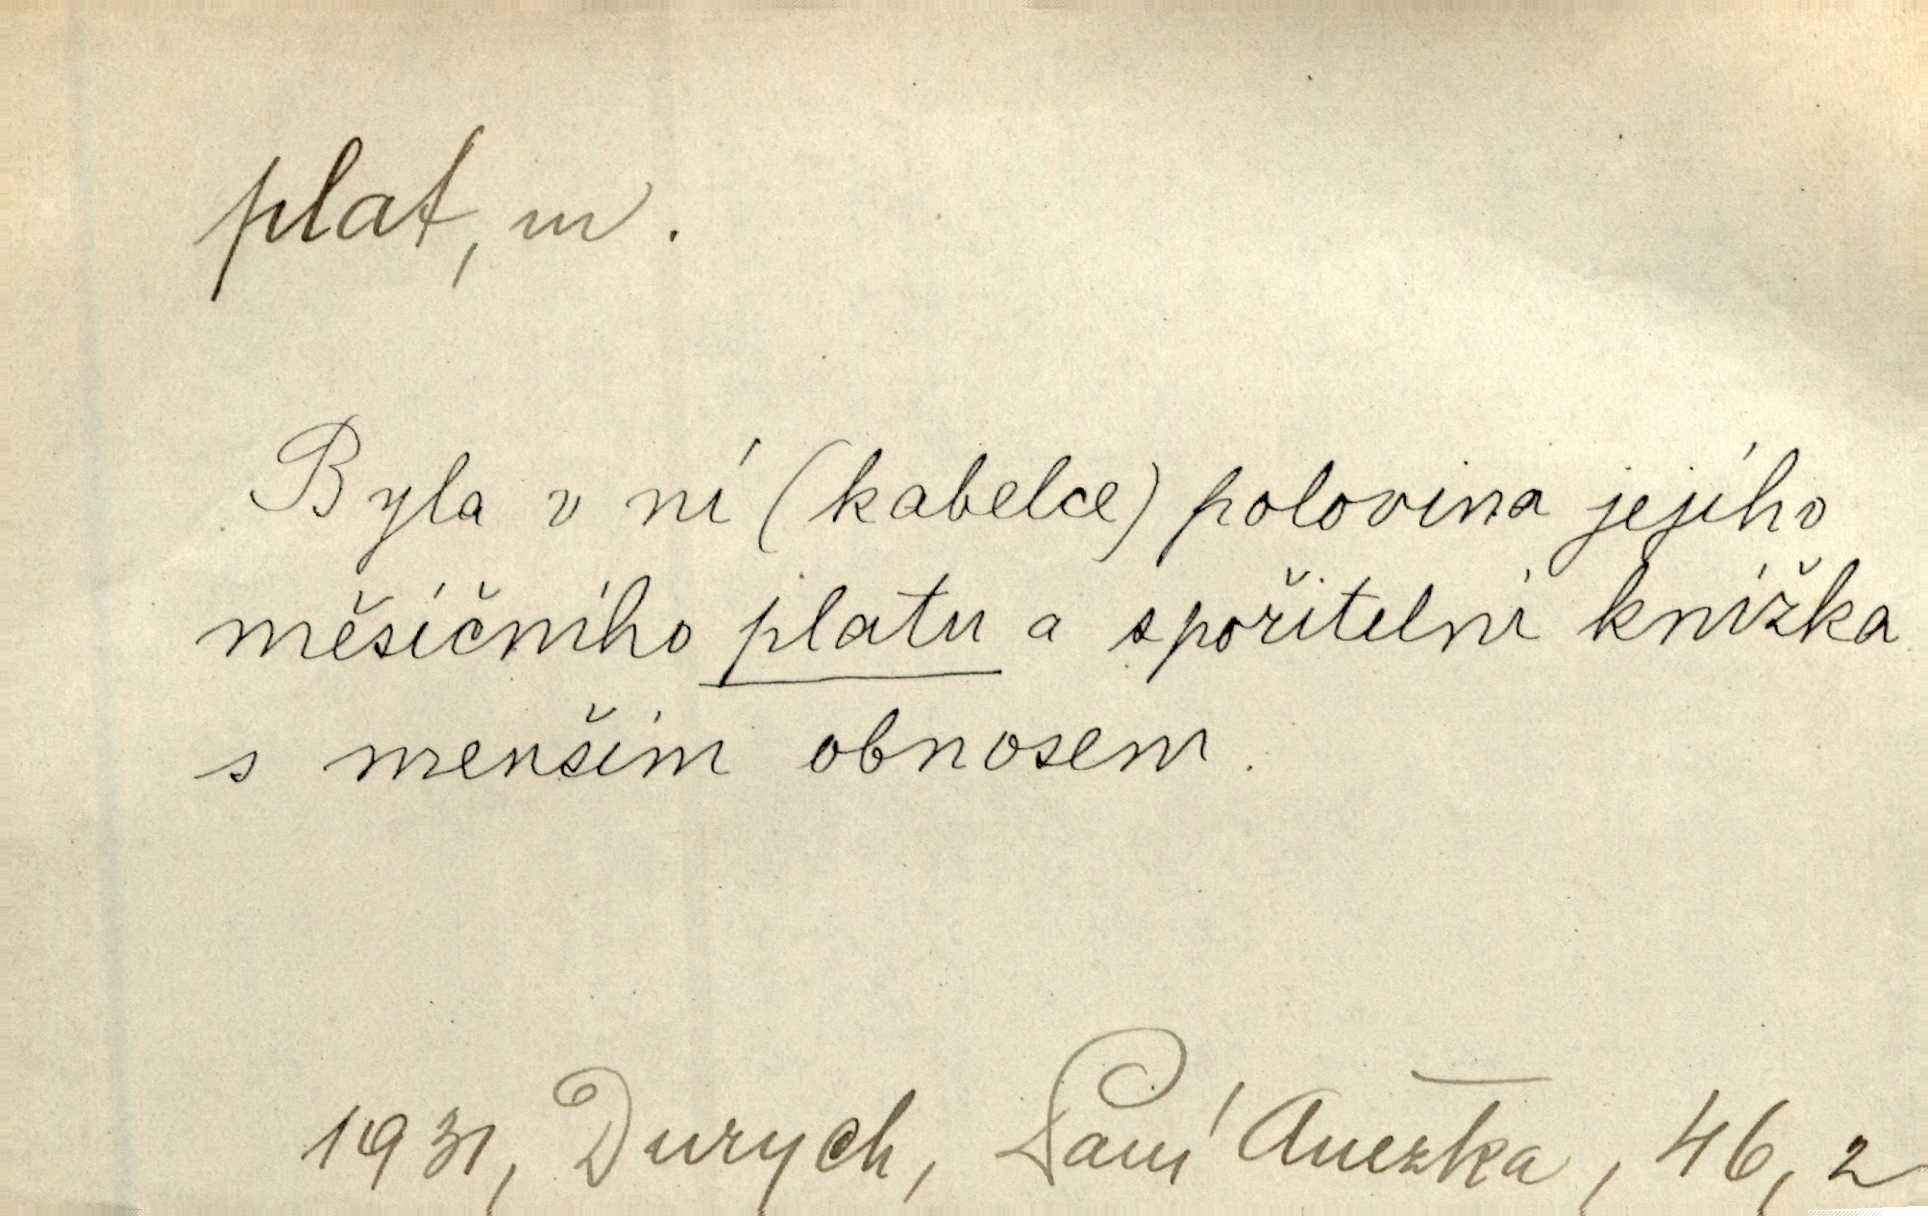 plat, m.
Byla v ní (kabelce) polovina jejího
měsíčního platu a spořitelní knížka
s menším obnosem.
1931, Durych, Paní Anežka, 46, 2